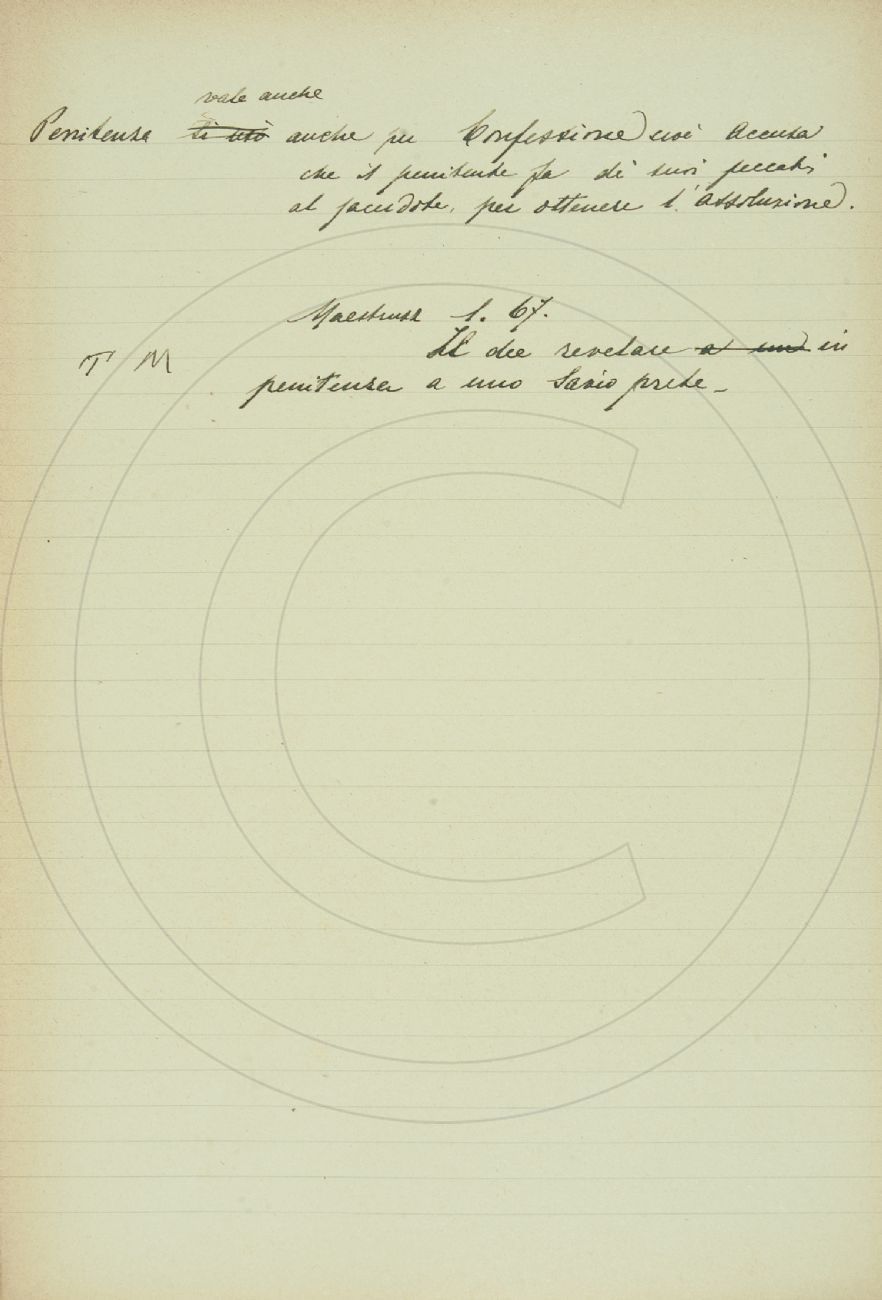 vale anche
Penitenza si usò anche per Confessione cioè Accusa
che il penitente fa de' suoi peccati
al sacerdote, per ottenere l'Assoluzione.
Maestruzz 1. 67.
T M
Il dee revelare a uno in
penitenza a uno Savio prete_